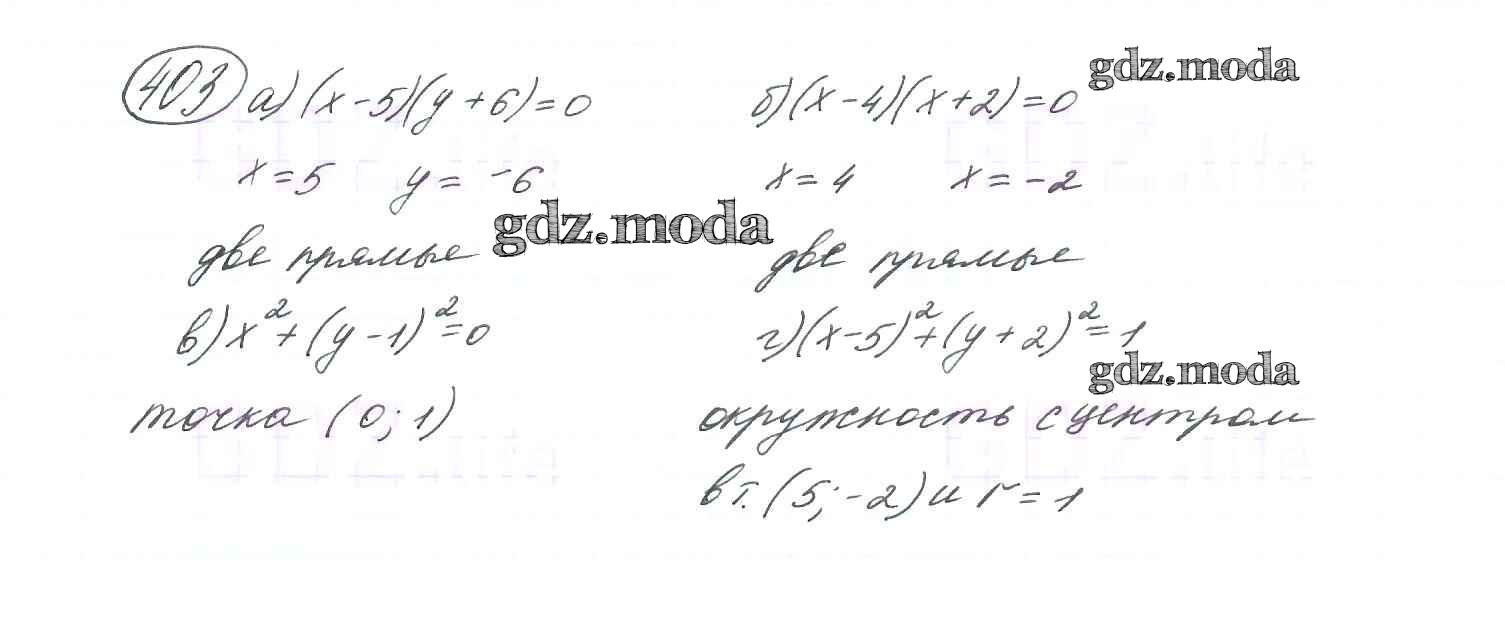 403 а) (x-5)(y+6)=0 б) (x-4)(x+2)=0 gdz.moda
x=5 y=-6 x=4 x=-2
gdz.moda
две прямые две прямые
в) x²+(y-1)²=0 г) (x-5)²+(y+2)²=1
gdz.moda
точка (0;1) окружность с центром
в т. (5;-2) и r=1